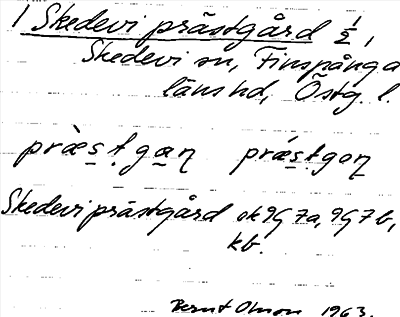 1 Skedevi prästgård 1/2,
Skedevi sn, Finspånga
läns hd, Östg. l.
præ̀s̲tga̲ƞ prǽs̲tgoƞ
Skedevi prästgård ek 9G 7a, 9G 7b,
kb.
Bernt Olsson 1963.